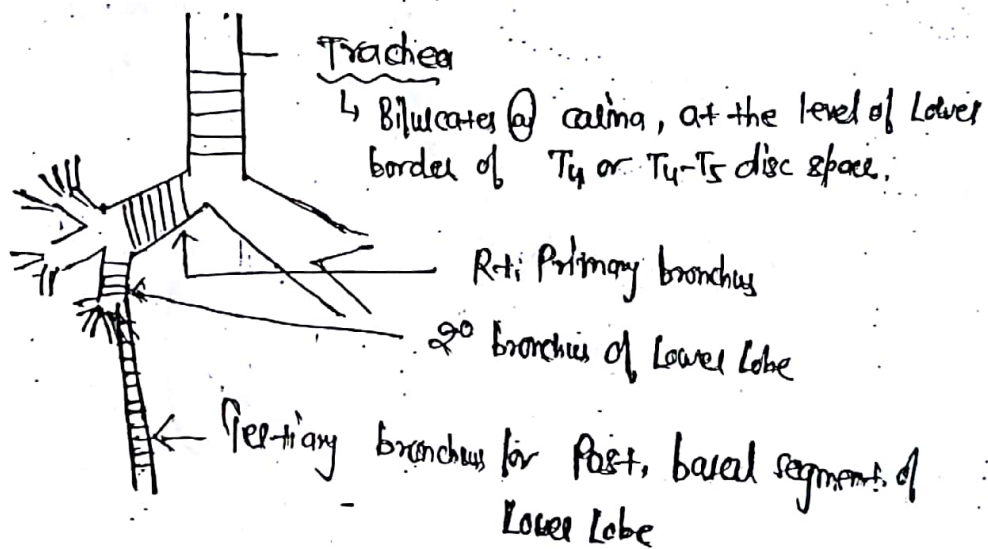 Trachea
↳ Bifurcates @ carina, at the level of Lower
border of T4 or T4-T5 disc space.
Rt. Primary bronchus
2° bronchus of Lower Lobe
Tertiary bronchus for Post. basal segment of
Lower Lobe